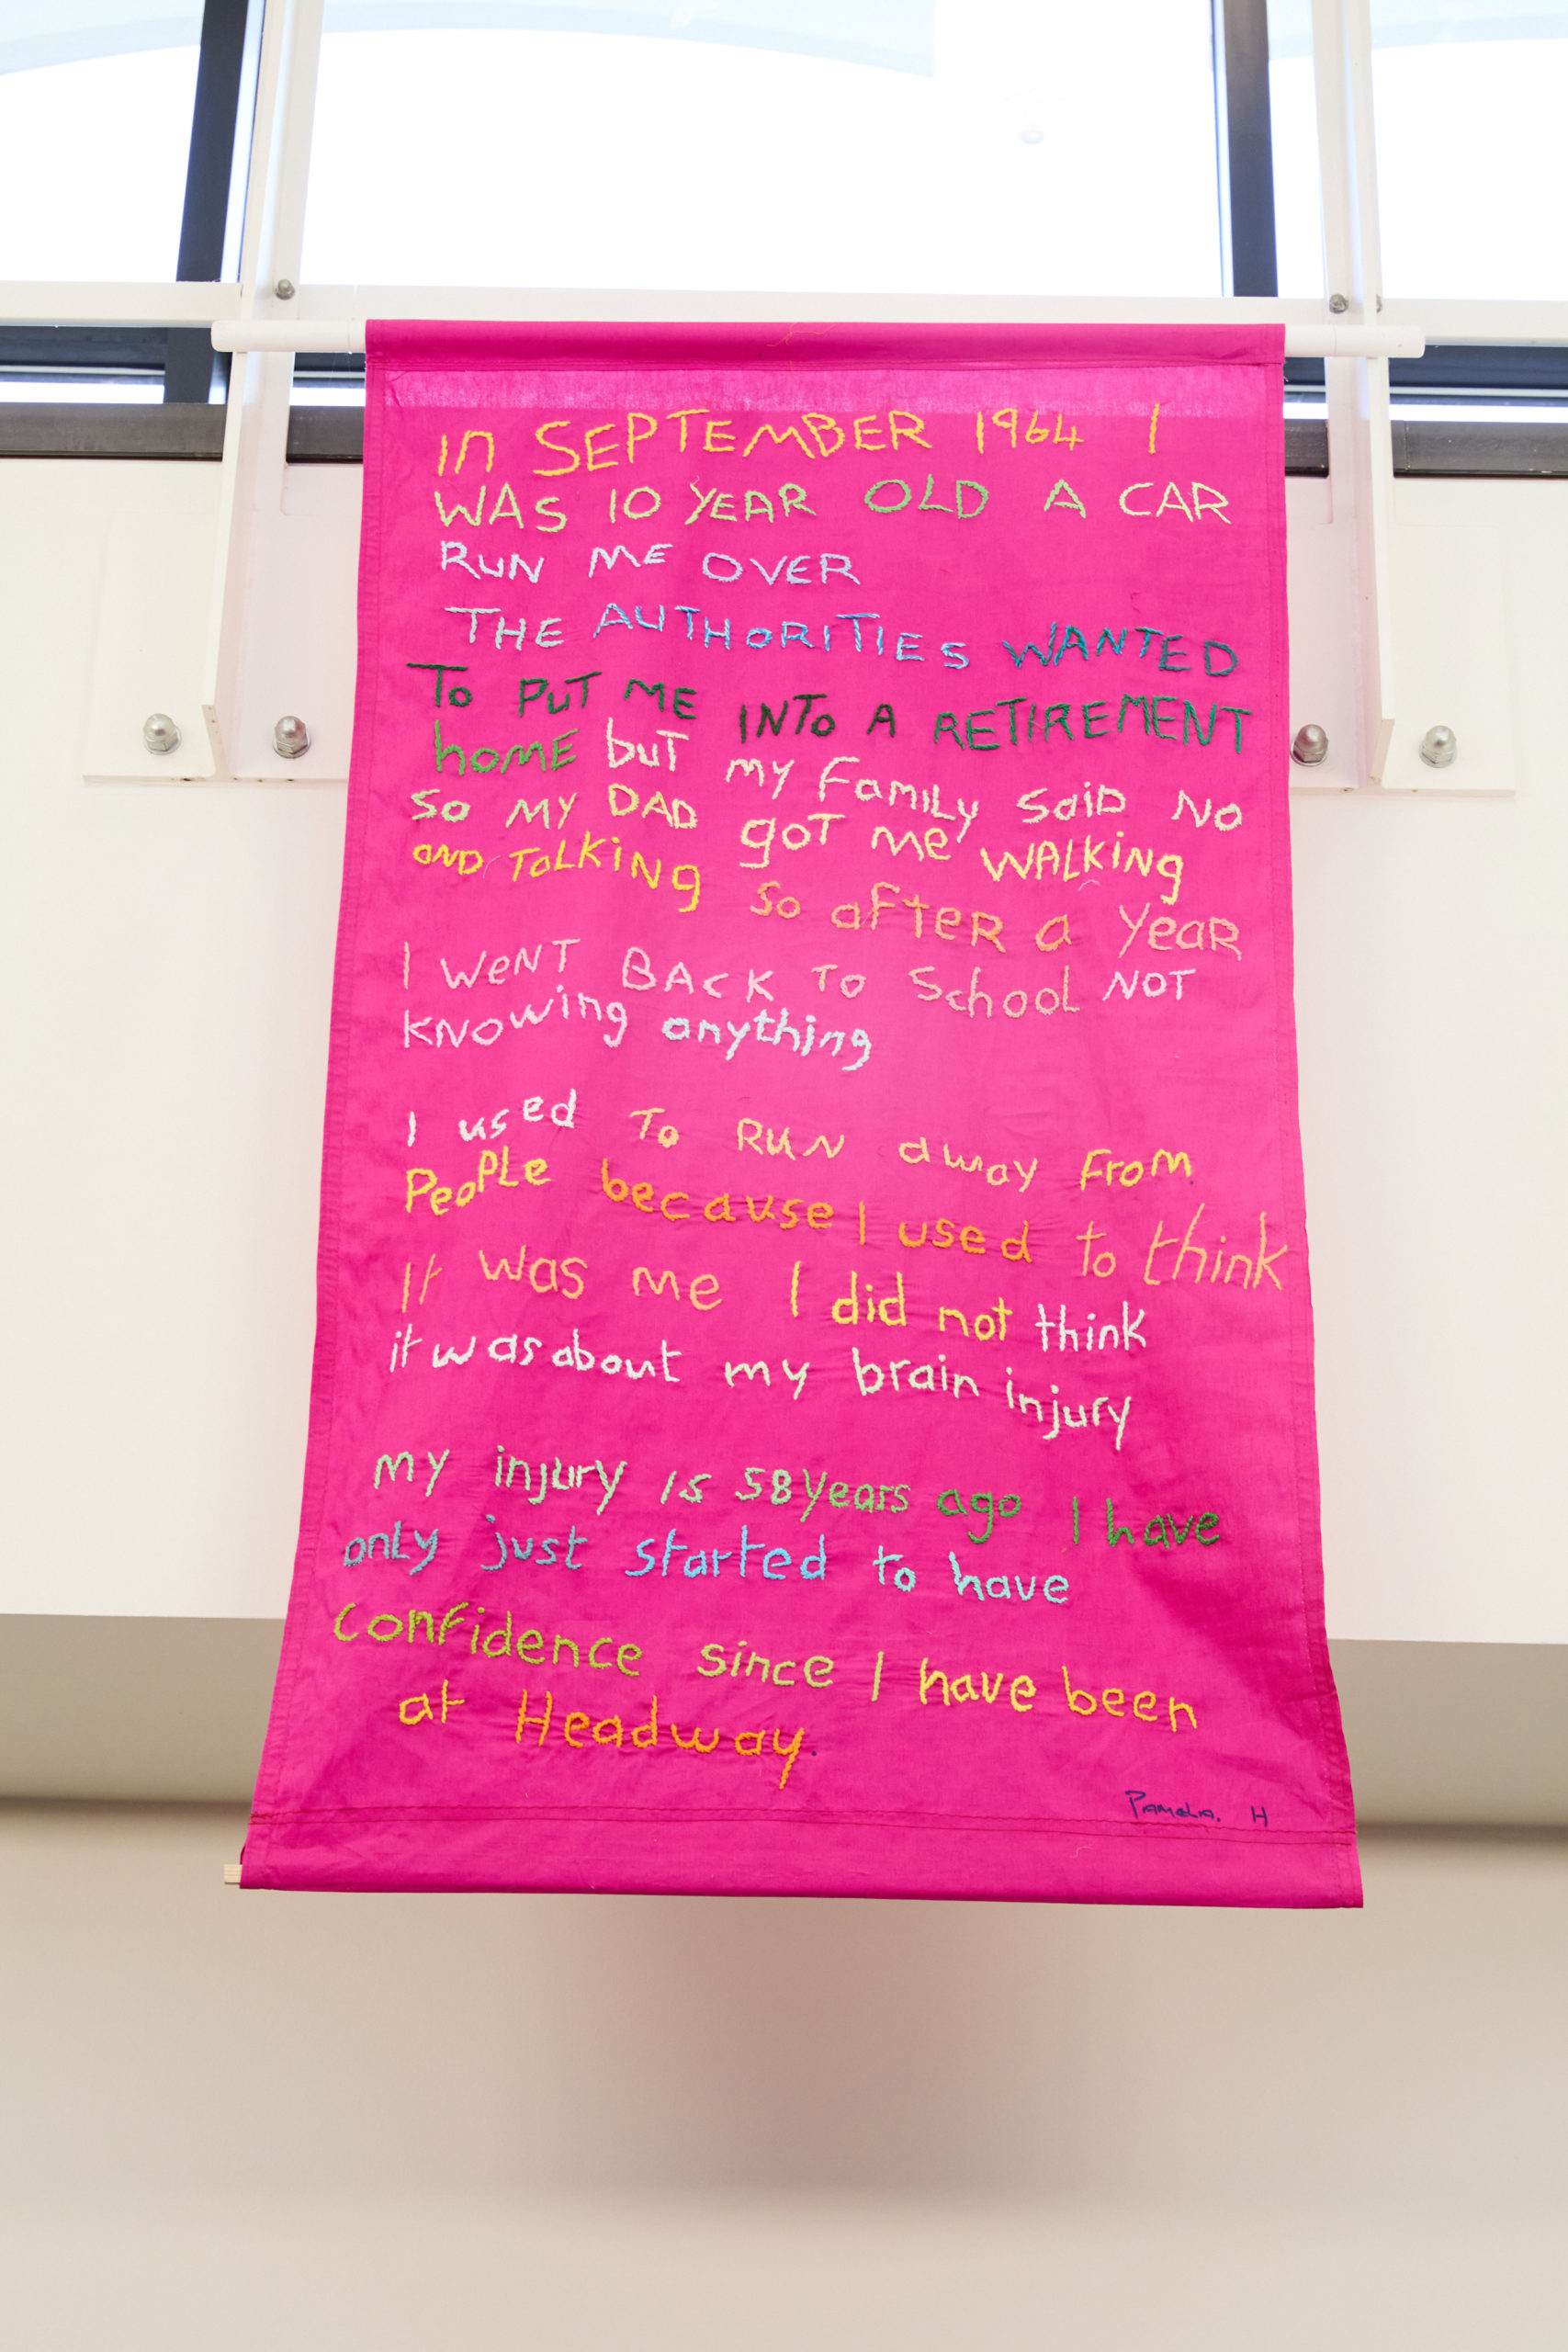 in SEPTEMBER 1964 I
WAS 10 YEAR OLD A CAR
RUN ME OVER
THE AUTHORITIES WANTED
To PUT ME INTo A RETIREMENT
hOME buT my FamiLy SaiD NO
So MY DAD goT me WALKiNg
AND TaLKiNg So aFTER a YeaR
I WeNT BAcK To School NOT
KNOwing anything
I used To RUN away From
PeoPLe because I used to think
It was me I did not think
it was about my brain injury
my injury is 58 years ago I have
only just started to have
confidence since I have been
at Headway.
PAMELA. H